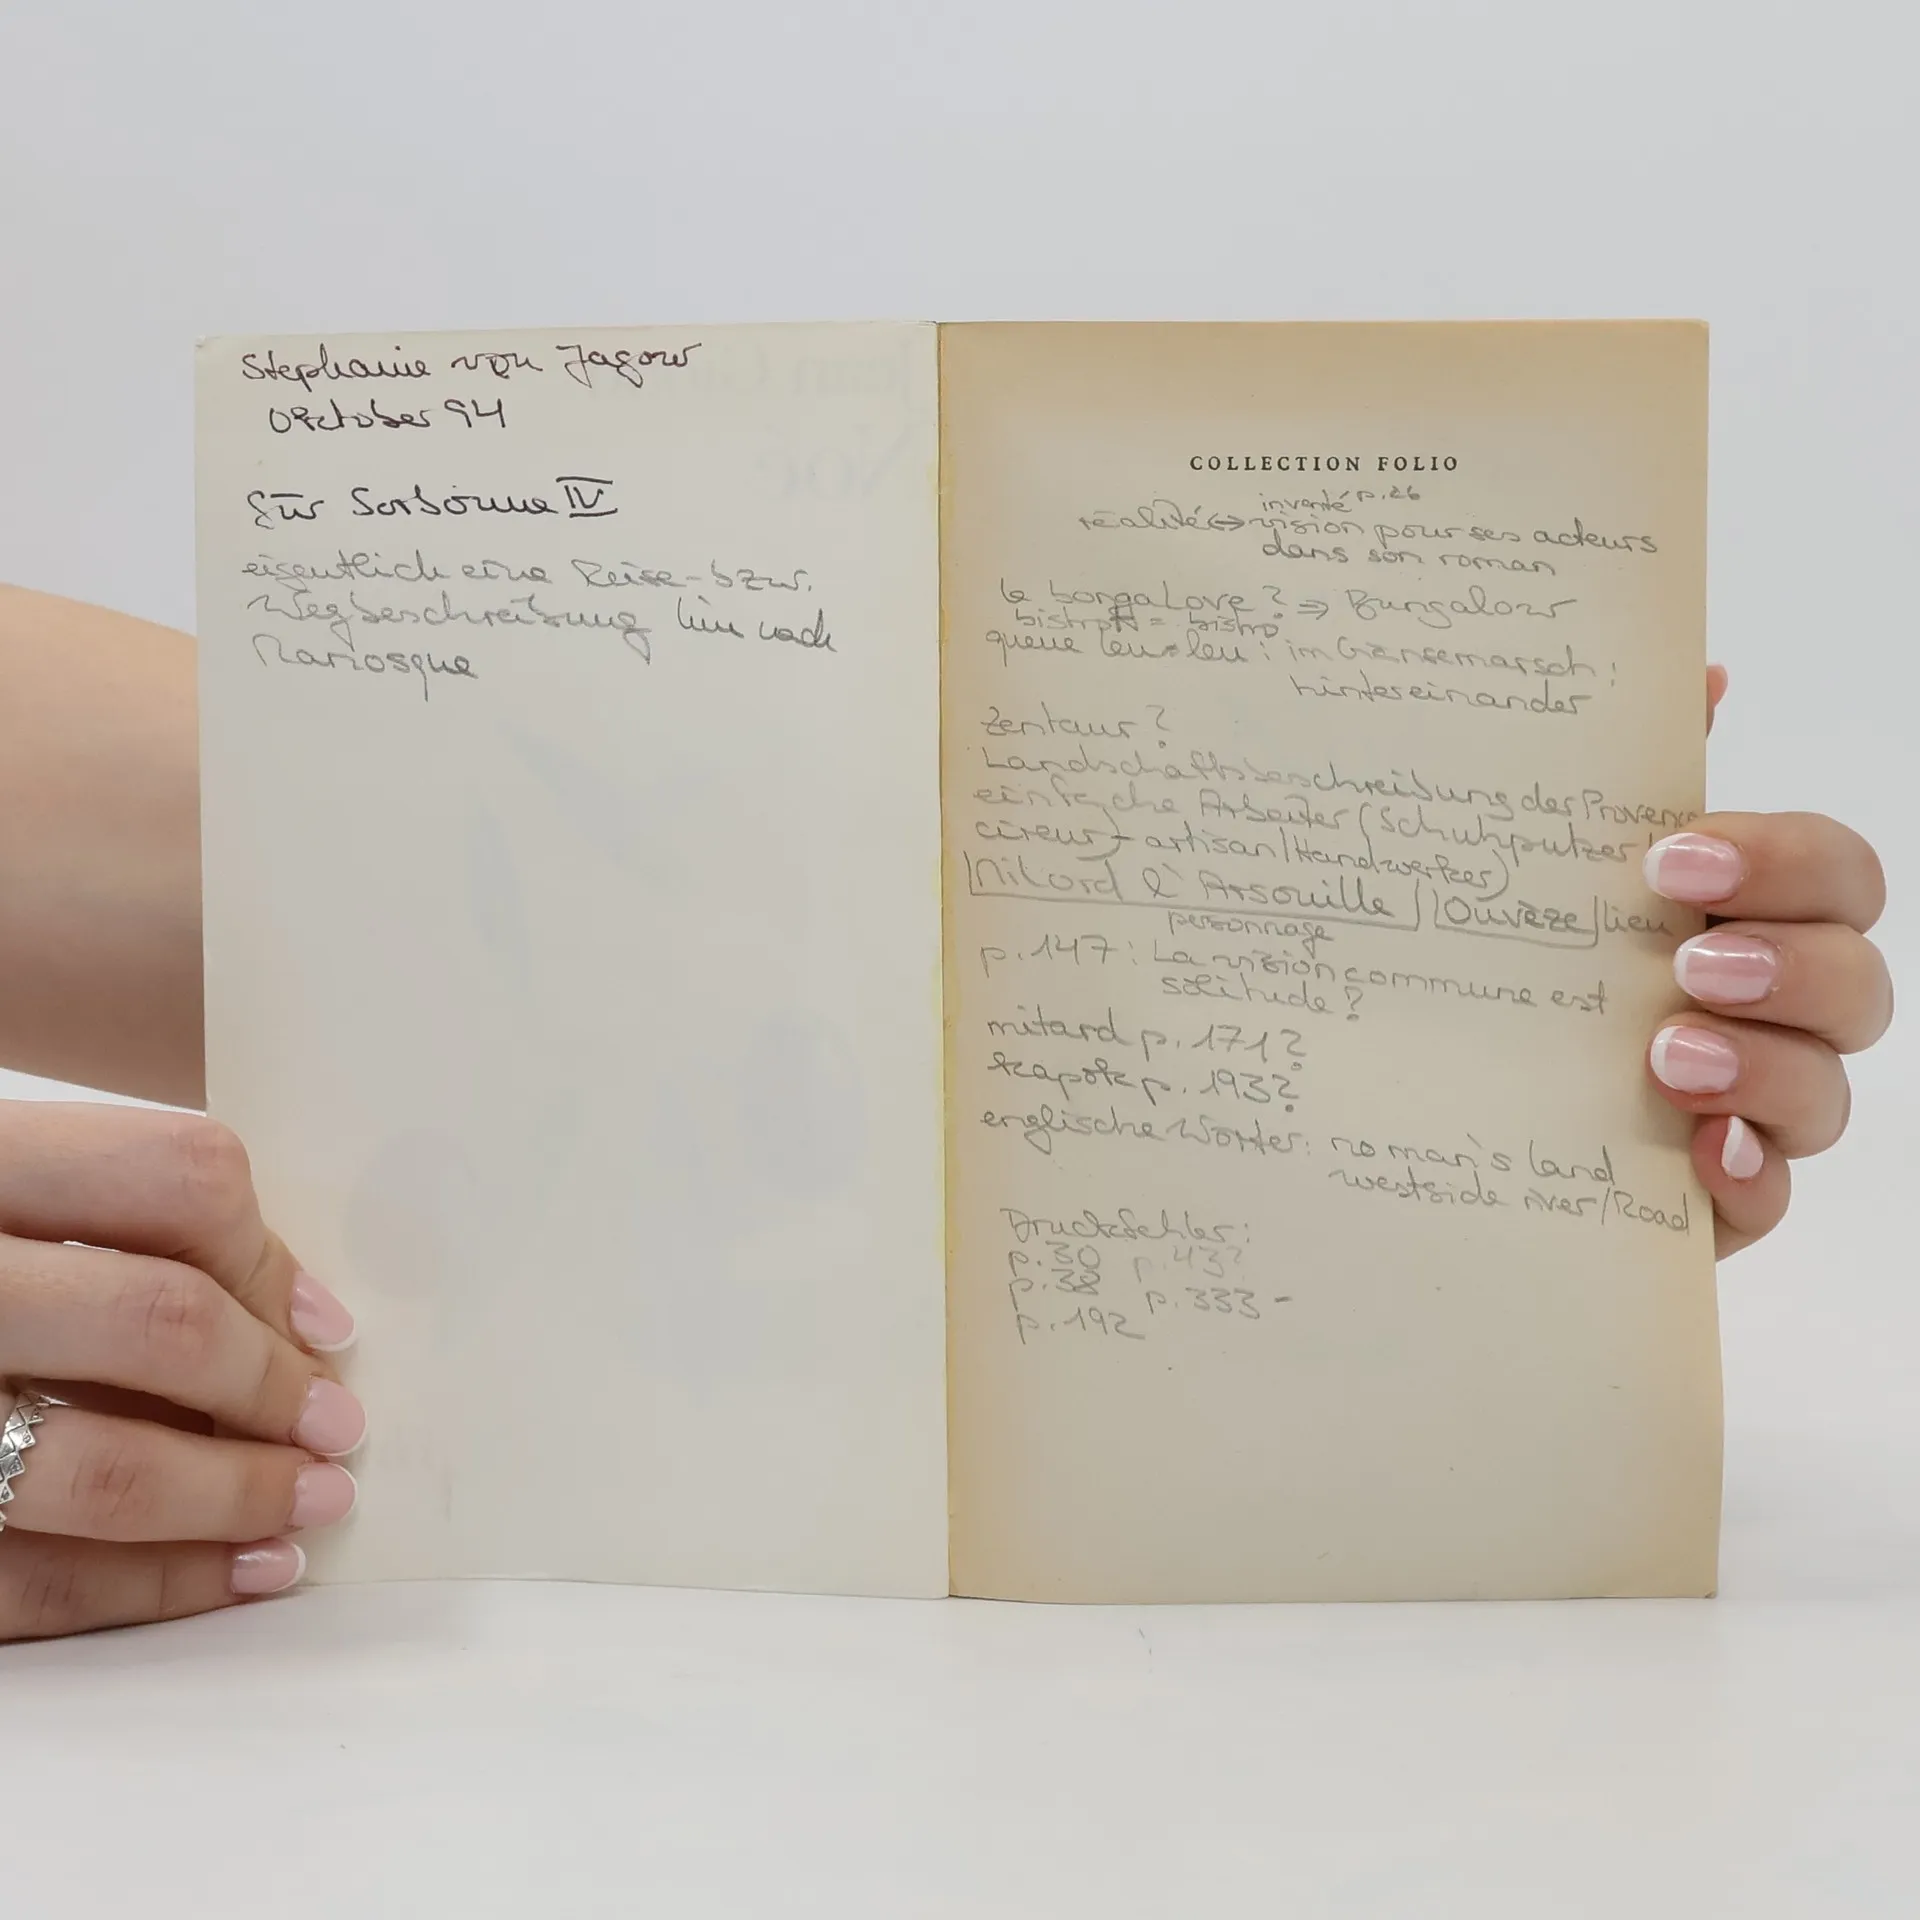 Stephanie von Jagow
Oktober 94
für Sorbonne IV
eigentlich eine Reise- bzw.
Wegbeschreibung hin nach
Manosque
COLLECTION FOLIO
inventé p.26
réalité ↔ vision pour ses acteurs
dans son roman
le borgalove? ⇒ Bungalow
bistrot = bistro
queue leu-leu: im Gänsemarsch;
hintereinander
Zentaur?
Landschaftsbeschreibung der Provence
einfache Arbeiter (Schuhputzer/
cireur) - artisan/Handwerker)
Milord l'Arsouille / Ouvèze / lieu
personnage
p. 147: La vision commune est
solitude?
mitard p. 171?
kapok p. 193?
englische Wörter: no man's land
westside river/Road
Druckfehler:
p. 30 p. 43?
p. 38
p. 333 -
p. 192